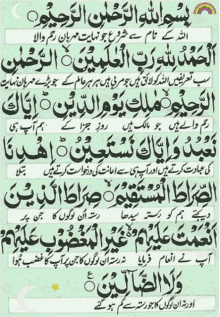 بِسْمِ اللهِ الرَّحْمٰنِ الرَّحِيْمِ
اللہ کے نام سے شروع جو نہایت مہربان رحم والا
اَلْحَمْدُ لِلّٰهِ رَبِّ الْعٰلَمِيْنَ ۙ الرَّحْمٰنِ
سب تعریفیں اللہ کو لائق ہیں جو مربی ہیں ہر ہر عالم کے جو بڑے مہربان نہایت
الرَّحِيْمِ ۙ مٰلِكِ يَوْمِ الدِّيْنِ ؕ اِيَّاكَ
رحم والے ہیں جو مالک ہیں روز جزا کے ہم آپ ہی
نَعْبُدُ وَاِيَّاكَ نَسْتَعِيْنُ ؕ اِهْدِنَا
کی عبادت کرتے ہیں اور آپ ہی سے اعانت کی درخواست کرتے ہیں بتلا
الصِّرَاطَ الْمُسْتَقِيْمَ ۙ صِرَاطَ الَّذِيْنَ
دیجئے ہم کو رستہ سیدھا رستہ ان لوگوں کا جن پر
اَنْعَمْتَ عَلَيْهِمْ ۙ غَيْرِ الْمَغْضُوْبِ عَلَيْهِمْ
آپ نے انعام فرمایا نہ رستہ ان لوگوں کا جن پر آپ کا غضب ہوا
وَلَا الضَّآلِّيْنَ
اور نہ ان لوگوں کا جو رستہ سے گم ہو گئے